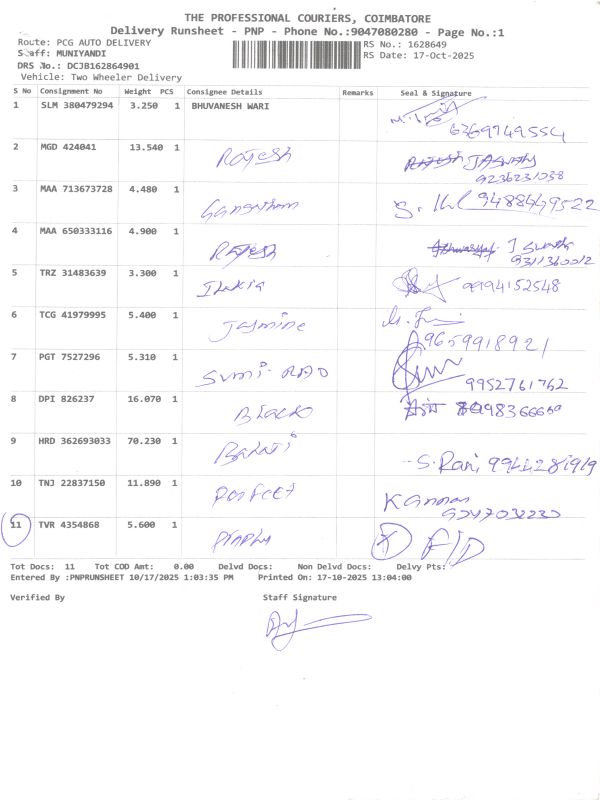 THE PROFESSIONAL COURIERS, COIMBATORE
Delivery Runsheet - PNP - Phone No.:9047080280 - Page No.:1
Route: PCG AUTO DELIVERY RS No.: 1628649
Staff: MUNIYANDI RS Date: 17-Oct-2025
DRS No.: DCJB162864901
Vehicle: Two Wheeler Delivery
S No Consignment No Weight PCS Consignee Details Remarks Seal & Signature
1 SLM 380479294 3.250 1 BHUVANESH WARI
6369749554
2 MGD 424041 13.540 1 Rajesh
9236231038
3 MAA 713673728 4.480 1 9488449522
4 MAA 650333116 4.900 1 Rajesh
9311360012
5 TRZ 31483639 3.300 1 Ilakia 9994152548
6 TCG 41979995 5.400 1 Jasmine
9659918921
7 PGT 7527296 5.310 1
9952761762
8 DPI 826237 16.070 1
9 HRD 362693033 70.230 1
S. Rani
10 TNJ 22837150 11.890 1 Perfect Kannan
11 TVR 4354868 5.600 1
Tot Docs: 11 Tot COD Amt: 0.00 Delvd Docs: Non Delvd Docs: Delvy Pts:
Entered By :PNPRUNSHEET 10/17/2025 1:03:35 PM Printed On: 17-10-2025 13:04:00
Verified By Staff Signature